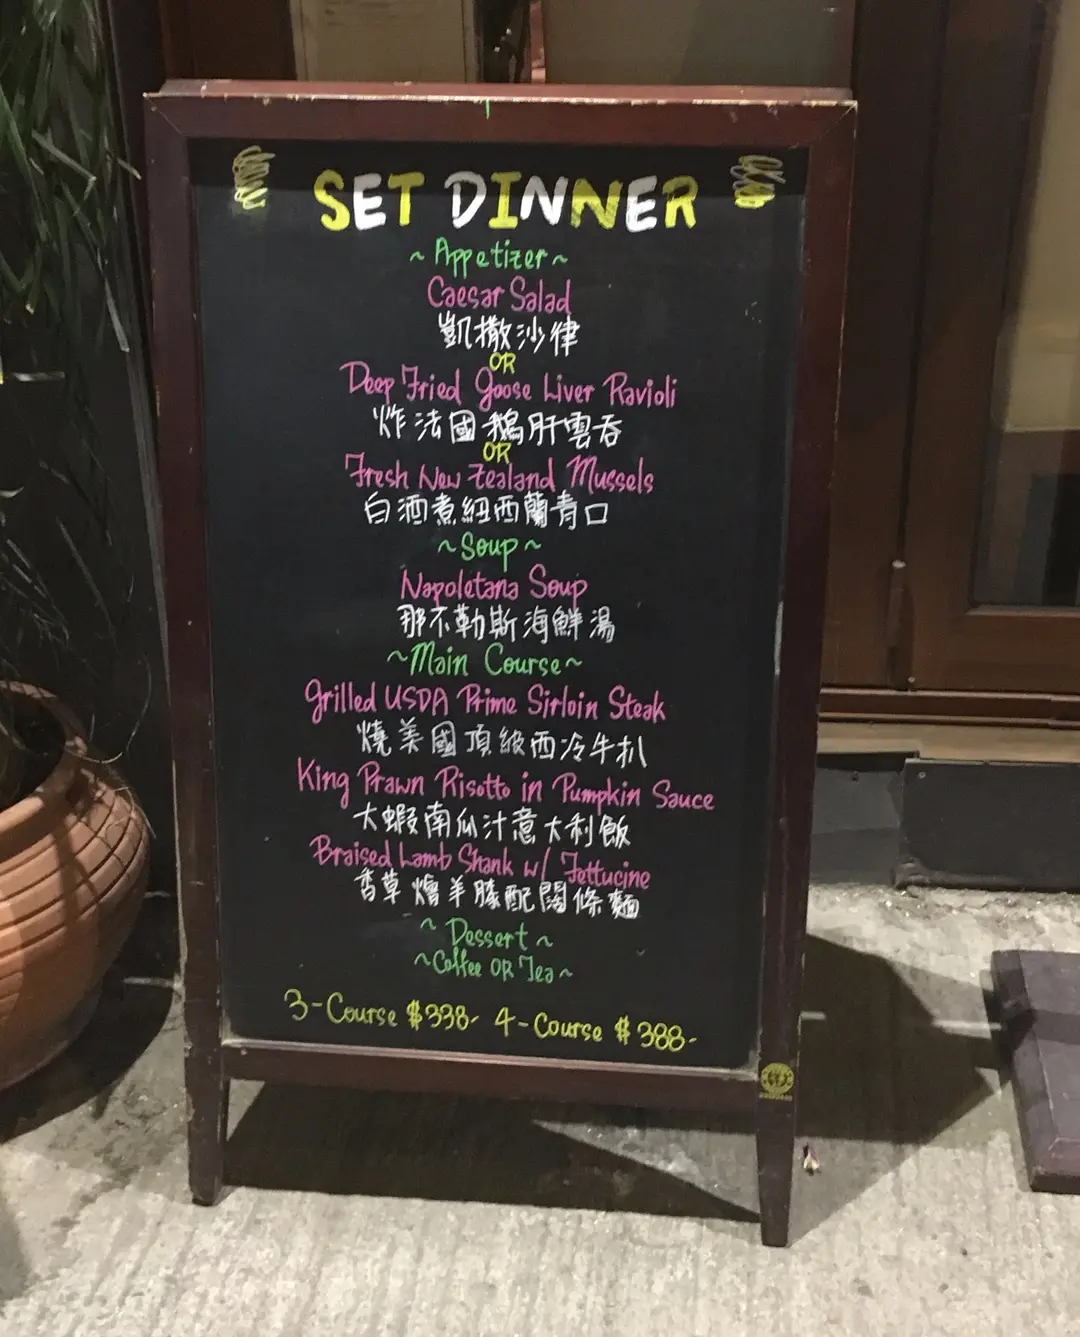 SET DINNER
~Appetizer~
Caesar Salad
凱撒沙律
OR
Deep Fried Goose Liver Ravioli
炸法國鵝肝雲吞
OR
Fresh New Zealand Mussels
白酒煮紐西蘭青口
~Soup~
Napoletana Soup
那不勒斯海鮮湯
~Main Course~
Grilled USDA Prime Sirloin Steak
燒美國頂級西冷牛扒
King Prawn Risotto in Pumpkin Sauce
大蝦南瓜汁意大利飯
Braised Lamb Shank w/ Fettucine
香草燴羊膝配闊條麵
~Dessert~
~Coffee OR Tea~
3-Course $338- 4-Course $388-